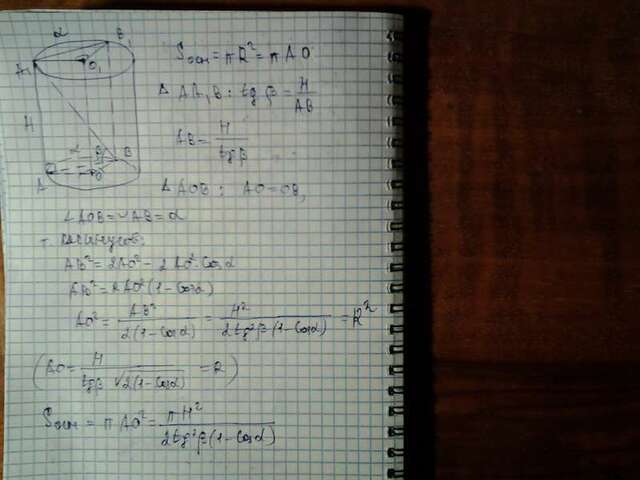 α
B₁
A₁
O₁
H
α
β
B
A
O
Sосн = πR² = πAO
△ AA₁B : tg β = H/AB
AB = H/tgβ
△ AOB : AO = OB,
∠AOB = ◡AB = α
т. косинусов:
AB² = 2AO² - 2AO²·Cosα
AB² = 2AO²(1-Cosα)
AO² = AB²/2(1-Cosα) = H²/2tg²β(1-Cosα) = R²
(AO = H/tgβ √2(1-Cosα) = R)
Sосн = πAO² = πH²/2tg²β(1-Cosα)